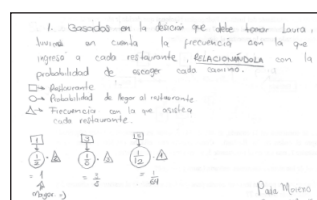 1. Basados en la desición que debe tomar Laura,
                        un cuenta la frecuencia con la que
ingreso a cada restaurante, RELACIONÁNDOLA con la
probabilidad de escoger cada camino.
□→ Restaurante
○→ Probabilidad de llegar al restaurante
△→ Frecuencia con la que asiste a
cada restaurante.
1 3 5
1/2 · 1/6 · 1/12 ·
= 1 =
mayor :)
Paula Moreno